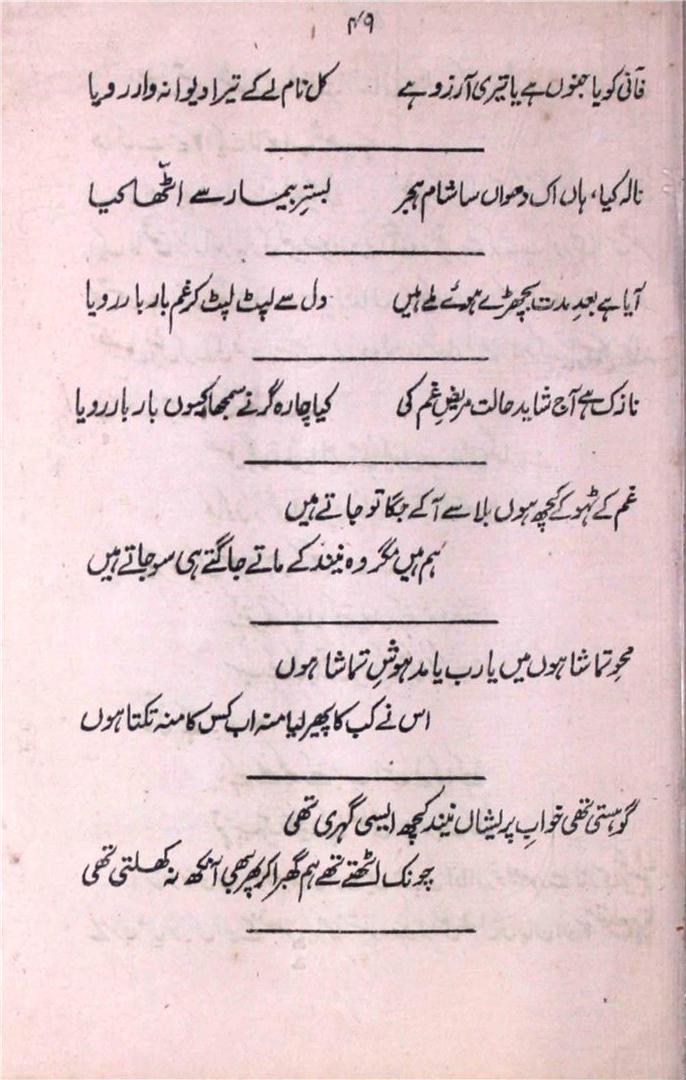 ۴۹
فانی کو یا جنوں ہے یا تیری آرزو ہے کل نام لے کے تیرا دیوانہ وار رویا
نالہ کیا، ہاں اک دھواں سا شام ہجر بسترِ بیمار سے اٹھا کیا
آیا ہے بعدِ مدت بچھڑے ہوئے ملے ہیں دل سے لپٹ لپٹ کر غم بار بار رویا
نازک ہے آج شاید حالت مریضِ غم کی کیا چارہ گر نے سمجھا کیوں بار بار رویا
غم کے ٹہوکے کچھ ہوں بلا سے آکے جگا تو جاتے ہیں
ہم ہیں مگر وہ نیند کے ماتے جاگتے ہی سو جاتے ہیں
محوِ تماشا ہوں میں یا رب یا مدہوشِ تماشا ہوں
اس نے کب کا پھیر لیا منہ اب کس کا منہ تکتا ہوں
گو ہستی تھی خوابِ پریشاں نیند کچھ ایسی گہری تھی
چونک اٹھتے تھے ہم گھبرا کر پھر بھی آنکھ نہ کھلتی تھی